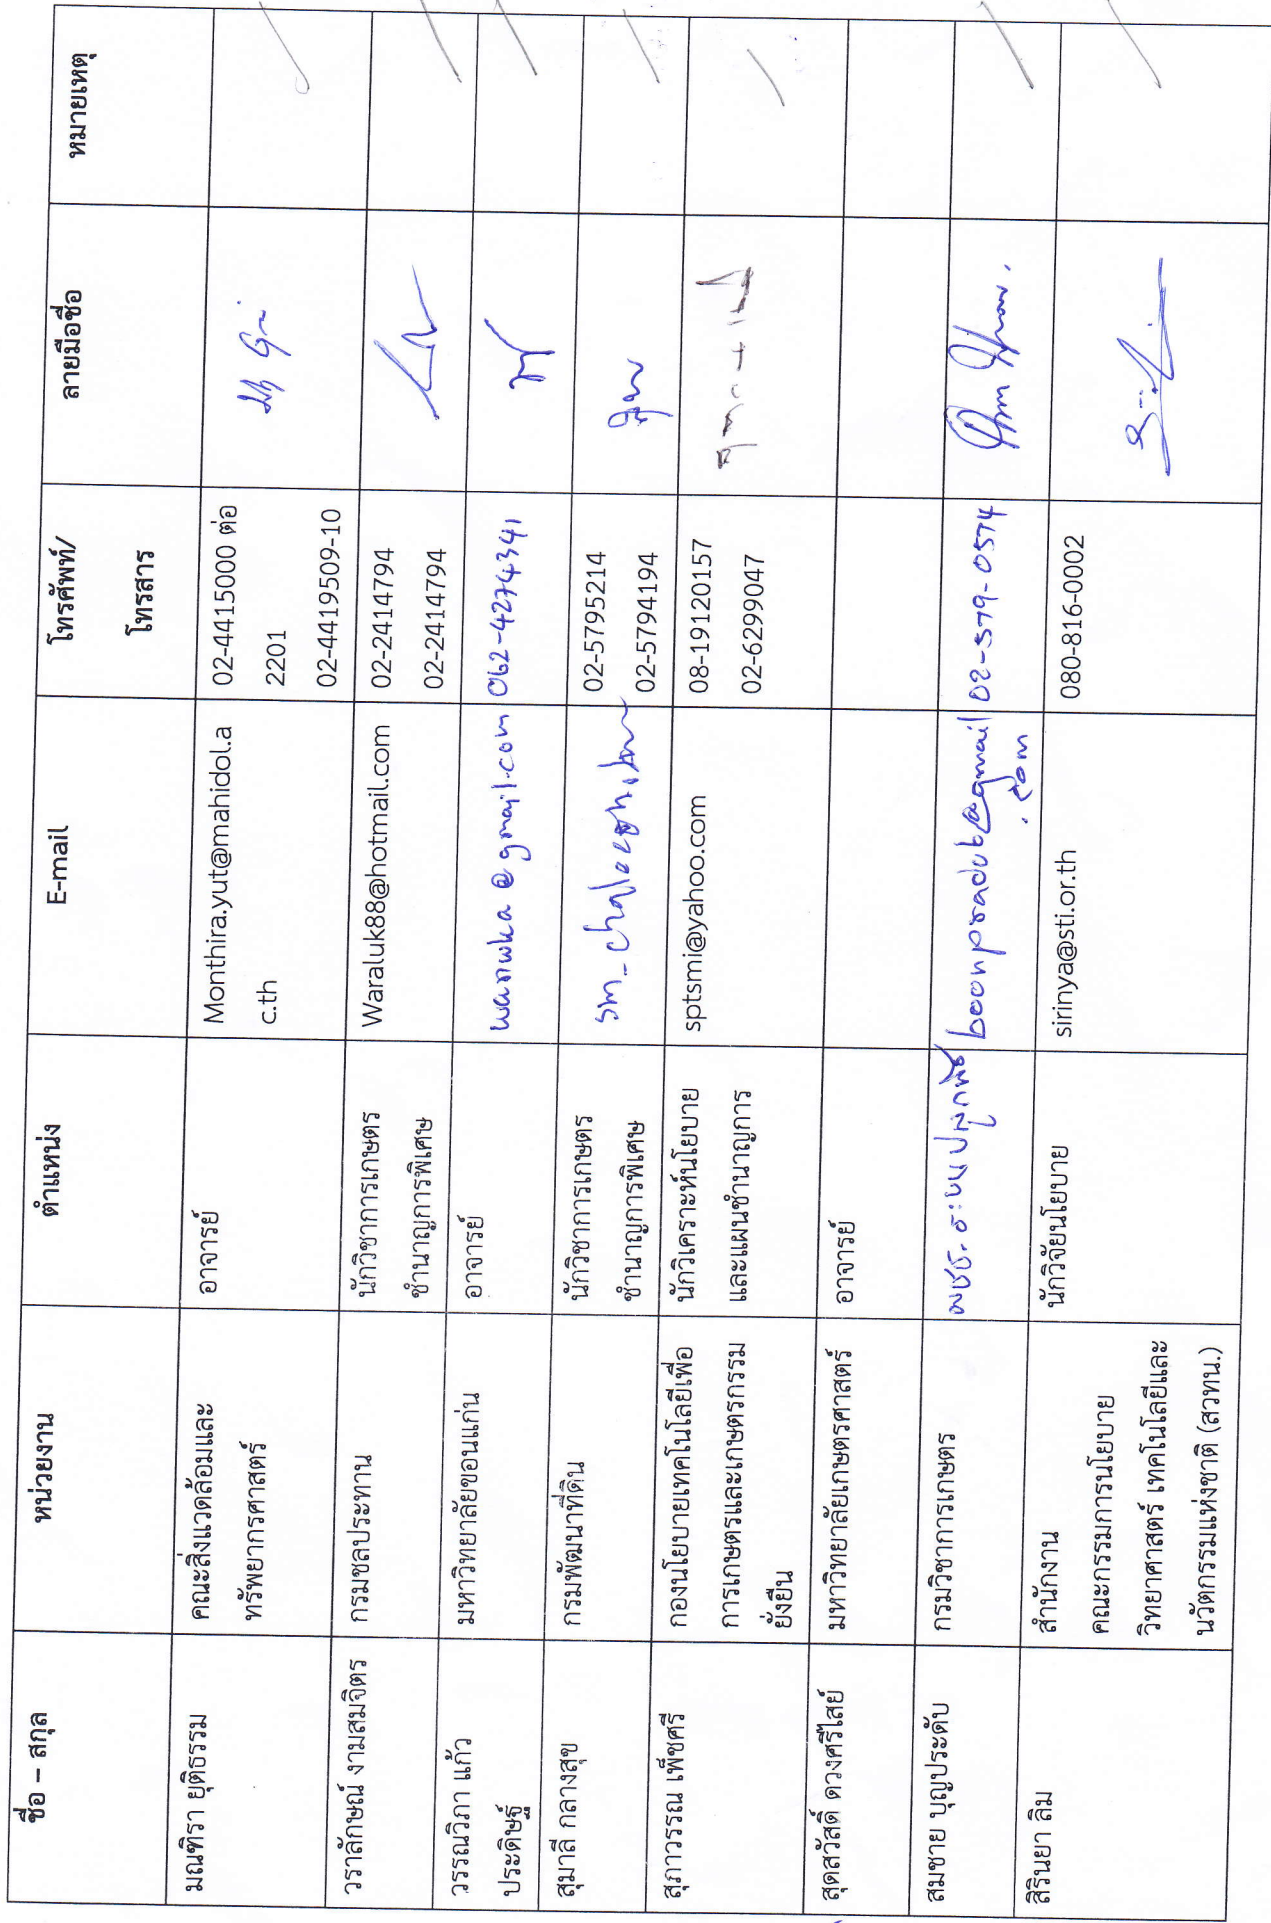 ชื่อ – สกุล
หน่วยงาน
ตำแหน่ง
E-mail
โทรศัพท์/
โทรสาร
ลายมือชื่อ
หมายเหตุ
มณฑิรา ยุติธรรม
คณะสิ่งแวดล้อมและ
ทรัพยากรศาสตร์
อาจารย์
Monthira.yut@mahidol.a
c.th
02-4415000 ต่อ
2201
02-4419509-10
วราลักษณ์ งามสมจิตร
กรมชลประทาน
นักวิชาการเกษตร
ชำนาญการพิเศษ
Waraluk88@hotmail.com
02-2414794
02-2414794
วรรณวิภา แก้ว
ประดิษฐ์
มหาวิทยาลัยขอนแก่น
อาจารย์
@gmail.com
062-4274341
สุมาลี กลางสุข
กรมพัฒนาที่ดิน
นักวิชาการเกษตร
ชำนาญการพิเศษ
02-5795214
02-5794194
สุภาวรรณ เพ็ชศรี
กองนโยบายเทคโนโลยีเพื่อ
การเกษตรและเกษตรกรรม
ยั่งยืน
นักวิเคราะห์นโยบาย
และแผนชำนาญการ
sptsmi@yahoo.com
08-19120157
02-6299047
สุดสวัสดิ์ ดวงศรีไสย์
มหาวิทยาลัยเกษตรศาสตร์
อาจารย์
สมชาย บุญประดับ
กรมวิชาการเกษตร
ผชช.ระบบปลูกพืช
boonpradub@gmail
.com
02-579-0574
สิรินยา ลิม
สำนักงาน
คณะกรรมการนโยบาย
วิทยาศาสตร์ เทคโนโลยีและ
นวัตกรรมแห่งชาติ (สวทน.)
นักวิจัยนโยบาย
sirinya@sti.or.th
080-816-0002